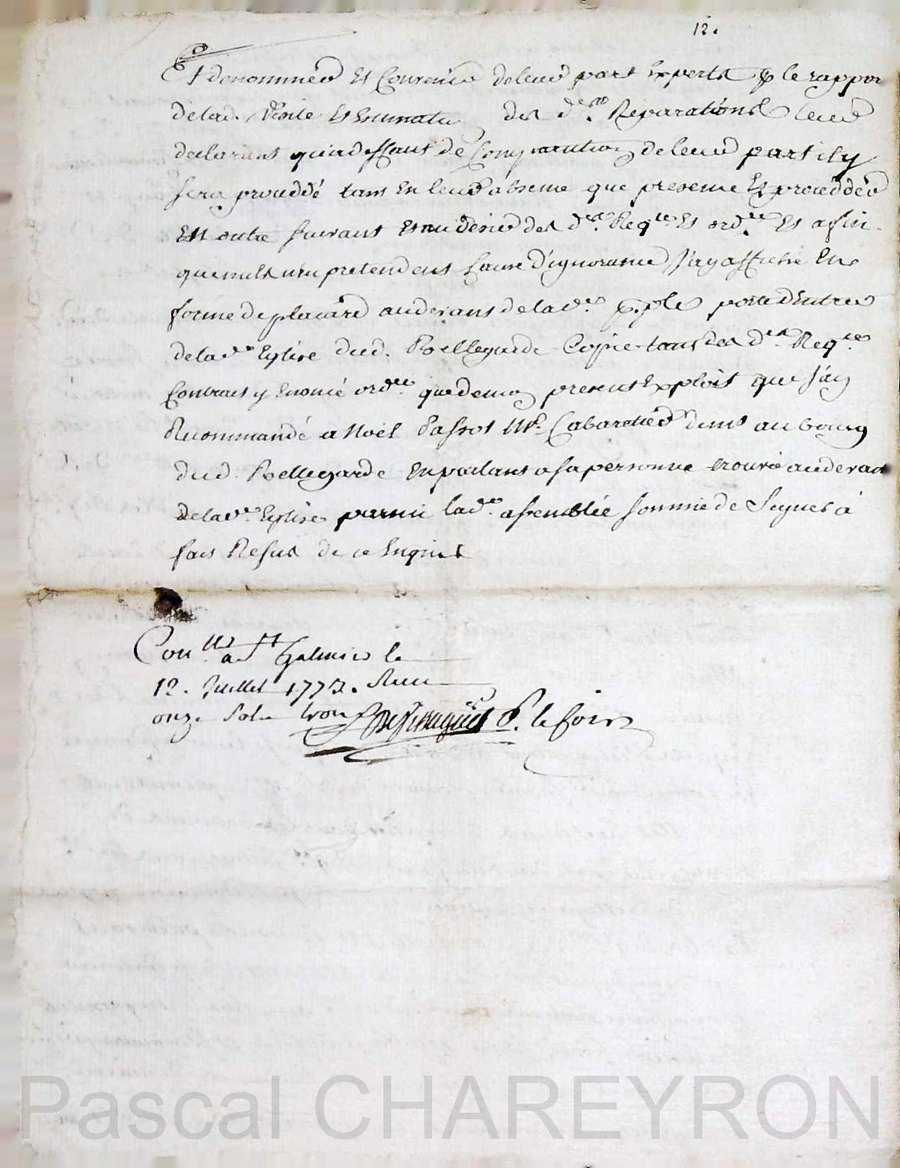 12.
Et denommer Et Convenir de leur part Experts p. le rappor
de lad. Visite Et Estimatn. des des. Reparations leur
declarant qu'a deffaut de Comparution de leur part il y
sera proceddé tant En leur absence que presence Et proceddér
En outre suivant Et au desir des des. Reqte Et ordce Et afin
que nuls n'en pretendent Cause d'ignorance J'ay affiché En
forme de placard au devant de lade. p.ple porte d'Entrée
de lade Eglise dud. Bellegarde Copie tant des des. Reqtes
Contrat y Enoncé ordce que de mon present Exploit que J'ay
Recommandé a Noël Passot Md. Cabaretier demt au bourg
dud. Bellegarde En parlant a sa personne trouvé au devan
de lade. Eglise parmi lade. assemblée sommé de Signer a
fait Refus de ce Enquis
Conllé a St Galmier le
12. Juillet 1772. Reçu
onze Sols trois
P. le Cois